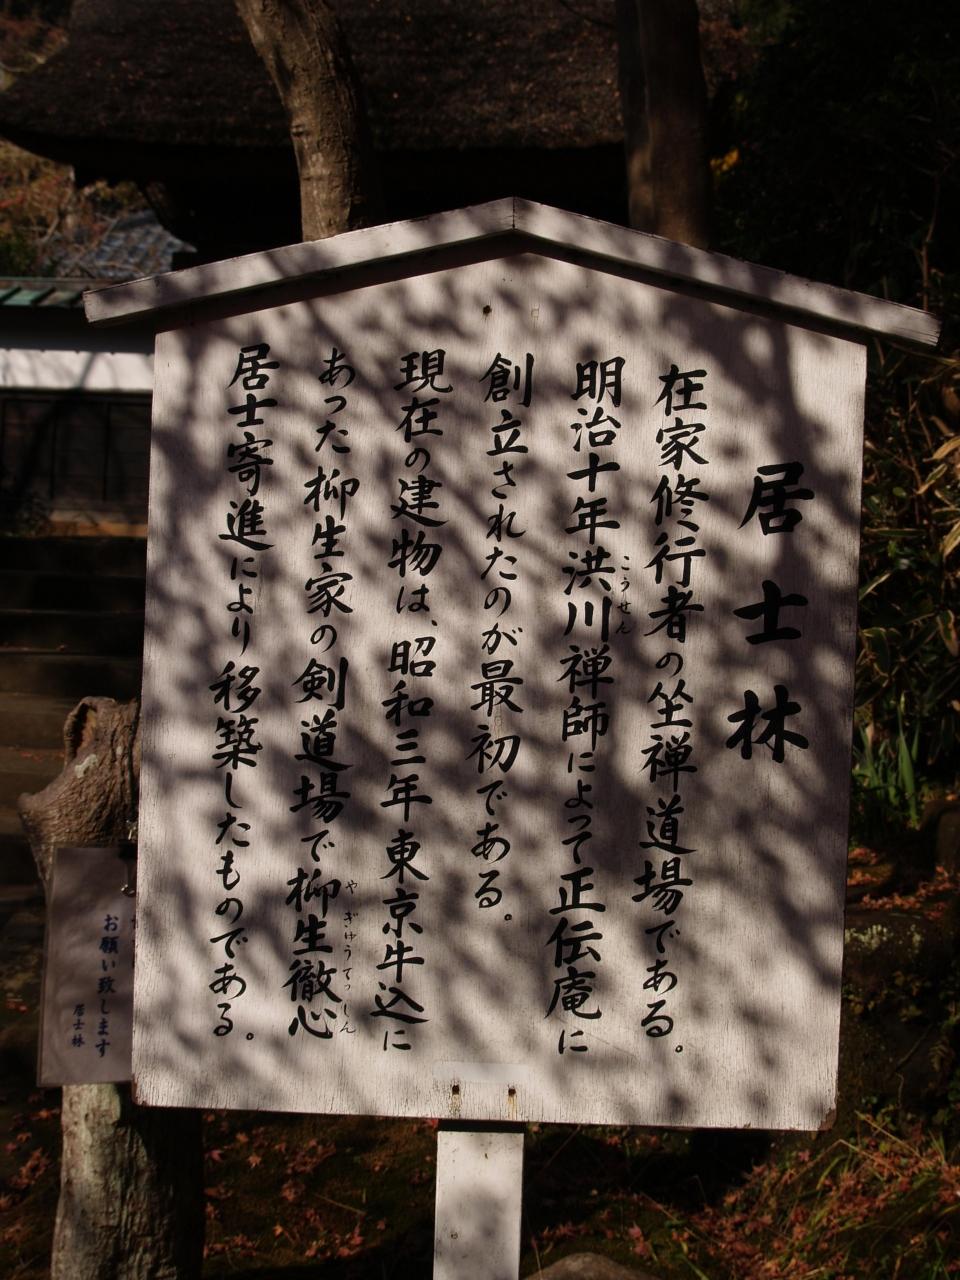 居士林
在家修行者の坐禅道場である。
明治十年洪川禅師によって正伝庵に
こうせん
創立されたのが最初である。
現在の建物は、昭和三年東京牛込に
あった柳生家の剣道場で柳生徹心
やぎゅうてっしん
居士寄進により移築したものである。
お願い致します
居士林